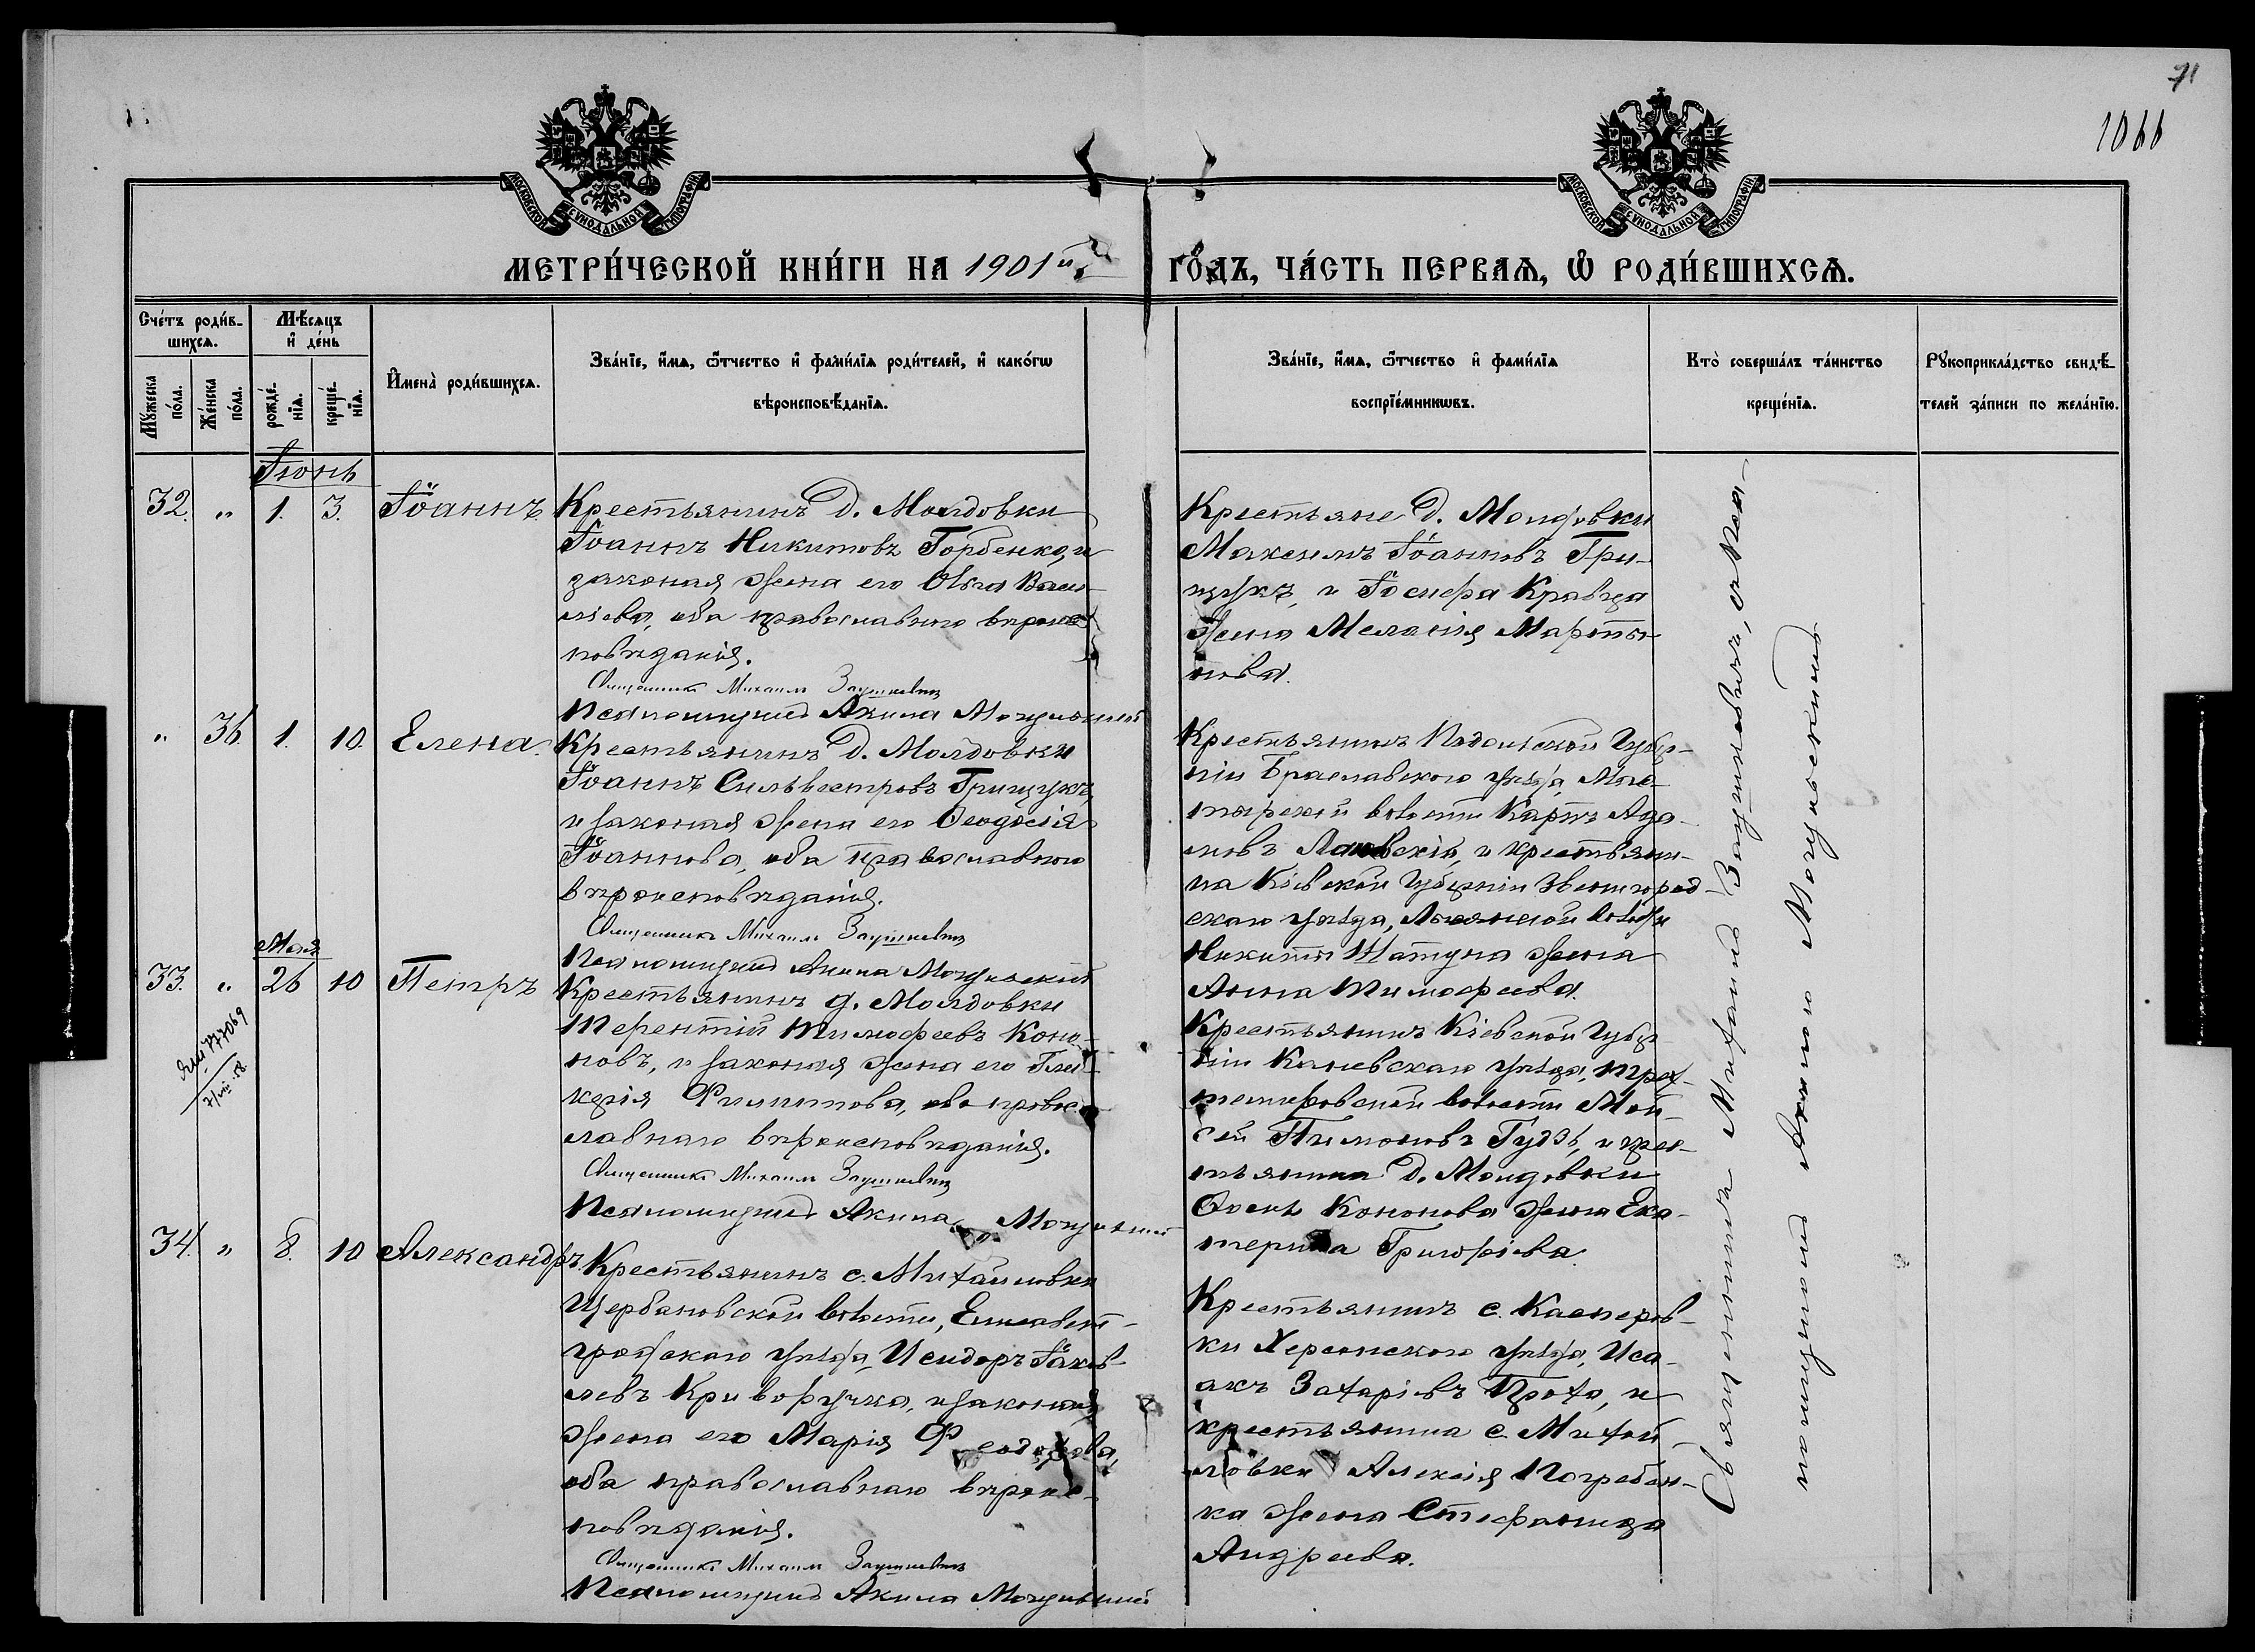 71
1066
МОСКОВСКОЙ СѴНОДАЛЬНОЙ ТИПОГРАФІИ.
МОСКОВСКОЙ СѴНОДАЛЬНОЙ ТИПОГРАФІИ.
МЕТРИ́ЧЕСКОЙ КНИ́ГИ НА 1901й
ГО́ДЪ, ЧА́СТЬ ПЕРВАѦ, Ѡ РОДИ́ВШИХСѦ.
Сче́тъ роди́в-
шихсѧ.
Мꙋ́жеска
по́ла.
Же́нска
по́ла.
Мѣ́сѧцъ
и҆ де́нь
рожде́-
нїѧ.
креще́-
нїѧ.
И҆мена̀ роди́вшихсѧ.
Зва́нїе, и҆́мѧ, ѻ҆́тчество и҆ фами́лїѧ роди́телей, и҆ како́гѡ
вѣроисповѣ́данїѧ.
Зва́нїе, и҆́мѧ, ѻ҆́тчество и҆ фами́лїѧ
воспрїе́мникѡвъ.
Кто̀ соверша́лъ та́инство
креще́нїѧ.
Рꙋкоприкла́дство свидѣ́-
телей за́писи по жела́нїю.
Іюнь
32. " 1. 3. Іоаннъ.
Крестьянинъ д. Молдовки
Іоаннъ Никитовъ Горбенко, и
законая жена его Ольга Васи-
ліева, оба православнаго вѣроис
повѣданія.
Священникъ Михаилъ Заушкевичъ
Псаломщикъ Акила Могульскій
Крестьяне д. Молдовки
Максимъ Іоанновъ Гри-
щукъ, и Іосифа Кравца
жена Меланія Марты-
нова.
" 36. 1. 10. Елена.
Крестьянинъ д. Молдовки
Іоаннъ Сильвестровъ Грищукъ,
и законая жена его Ѳеодосія
Іоаннова, оба православнаго
вѣроисповѣданія.
Священникъ Михаилъ Заушкевичъ
Псаломщикъ Акила Могульскій
Крестьянинъ Подольской Губер-
ніи Браславскаго уѣзда, Мяс-
волости Карпъ Ада-
мовъ и крестьяни-
на Кіевской Губерніи Звенигород-
скаго уѣзда, Лысянской волости
Никиты жена
Анна Тимофеева.
Мая
33. " 26 10 Петръ
7/VIII-58.
Крестьянинъ д. Молдовки
Терентій Тимофеевъ Коно-
новъ, и законая жена его Гли-
керія Филиппова, оба правос
лавнаго вѣроисповѣданія.
Священникъ Михаилъ Заушкевичъ
Псаломщикъ Акила Могульскій
Крестьянинъ Кіевской Губер-
ніи Каневскаго уѣзда,
волости Мой-
сей Пимоновъ Гудзь, и крес-
тьянина д. Молдовки
Кононова жена Ека-
терина Григоріева.
34. " 8. 10 Александръ.
Крестьянинъ с. Михайловки
Щербановской волости, Елисавет-
градскаго уѣзда, Исидоръ Іаков-
левъ Криворучка, и законая
жена его Марія Феодорова,
оба православнаго вѣроис-
повѣданія.
Священникъ Михаилъ Заушкевичъ
Псаломщикъ Акила Могульскій
Крестьянинъ с. Касперов-
ки Херсонскаго уѣзда, Иса-
акъ Захаріевъ и
крестьянина с. Михай-
ловки Алексія Погребен-
ка жена Стефанида
Андреева.
Священникъ Михаилъ Заушкевичъ, съ Пса-
ломщикомъ Акилою Могульскимъ